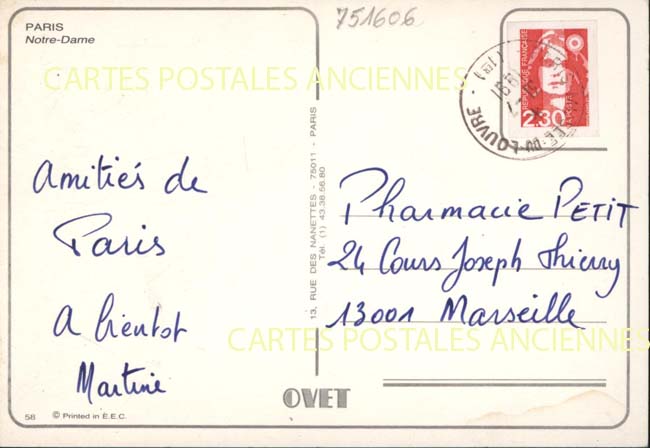 PARIS
Notre-Dame
751606
CARTES POSTALES ANCIENNES
RÉPUBLIQUE FRANÇAISE
2,30
LOUVRE
1991
Amitiés de
Paris
A bientot
Martine
13, RUE DES NANETTES - 75011 - PARIS
Tél. (1) 43.38.56.80
Pharmacie PETIT
24 Cours Joseph Thierry
13001 Marseille
CARTES POSTALES ANCIENNES
OVET
58
© Printed in E.E.C.